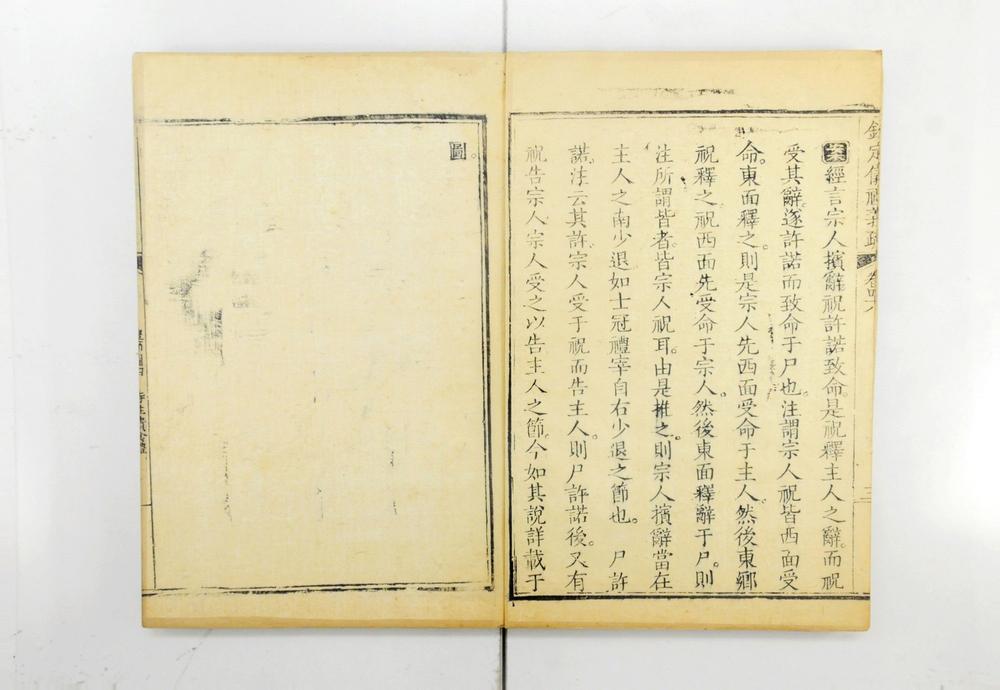 欽定儀禮義疏 卷四八
案經言宗人擯辭祝許諾致命是祝釋主人之辭而祝
受其辭遂許諾而致命于尸也注謂宗人祝皆西面受
命東面釋之則是宗人先西面受命于主人然後東鄉
祝釋之祝西面先受命于宗人然後東面釋辭于尸則
注所謂皆者皆宗人祝耳由是推之則宗人擯辭當在
主人之南少退如士冠禮宰自右少退之節也 尸許
諾注云其許宗人受于祝而告主人則尸許諾後又有
祝告宗人宗人受之以告主人之節今如其說詳載于
圖